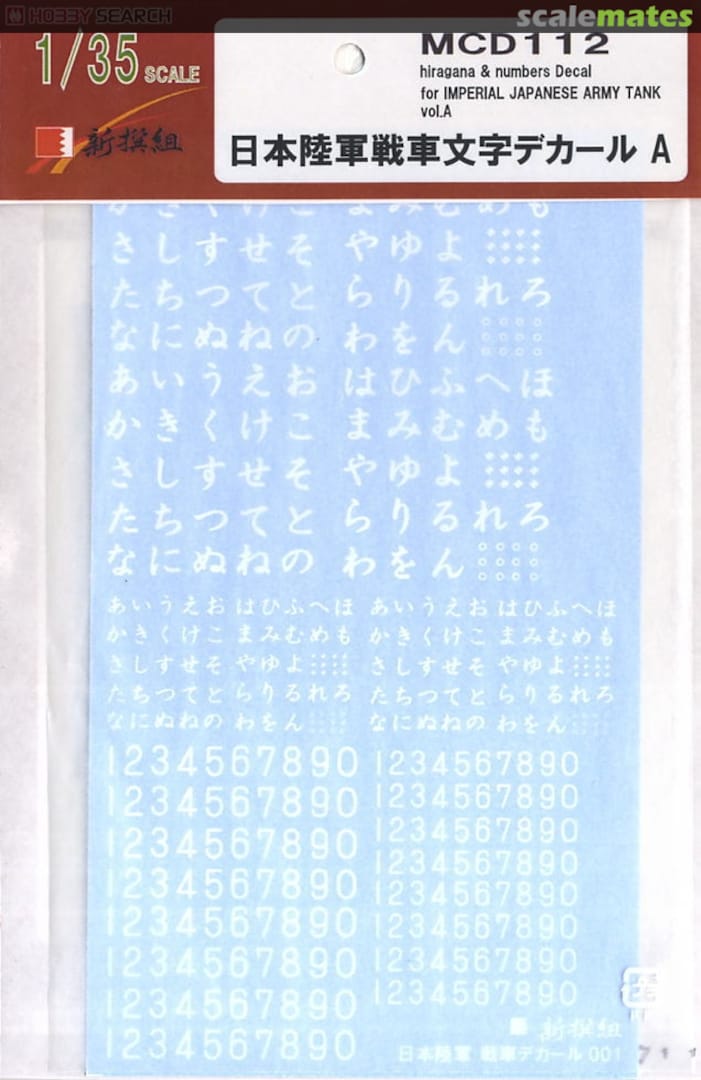 HOBBY SEARCH
scalemates
1/35 SCALE
MCD112
hiragana & numbers Decal
for IMPERIAL JAPANESE ARMY TANK
vol.A
新撰組
日本陸軍戦車文字デカール A
かきくけこ まみむめも
さしすせそ やゆよ
たちつてと らりるれろ
なにぬねの わをん
あいうえお はひふへほ
かきくけこ まみむめも
さしすせそ やゆよ
たちつてと らりるれろ
なにぬねの わをん
あいうえお はひふへほ あいうえお はひふへほ
かきくけこ まみむめも かきくけこ まみむめも
さしすせそ やゆよ さしすせそ やゆよ
たちつてと らりるれろ たちつてと らりるれろ
なにぬねの わをん なにぬねの わをん
1234567890 1234567890
1234567890 1234567890
1234567890 1234567890
1234567890 1234567890
1234567890 1234567890
1234567890 1234567890
1234567890 1234567890
1234567890 1234567890
新撰組
日本陸軍 戦車デカール 001